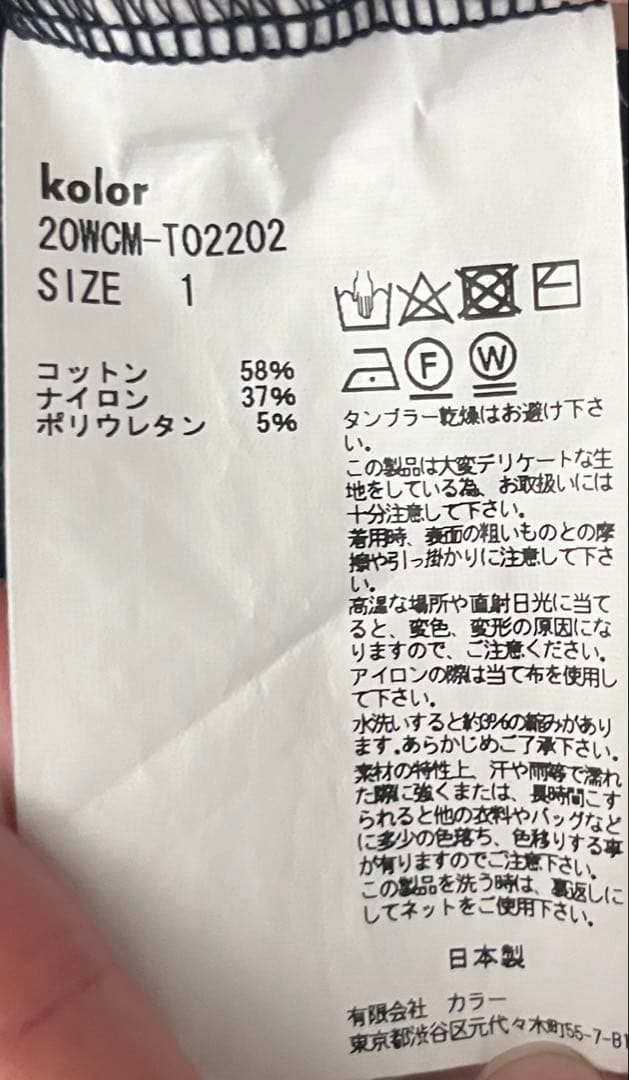 kolor
20WCM-T02202
SIZE 1
コットン 58%
ナイロン 37%
ポリウレタン 5%
F
W
タンブラー乾燥はお避け下さ
い。
この製品は大変デリケートな生
地をしている為、お取扱いには
十分注意して下さい。
着用時、表面の粗いものとの摩
擦や引っ掛かりに注意して下さ
い。
高温な場所や直射日光に当て
ると、変色、変形の原因にな
りますので、ご注意ください。
アイロンの際は当て布を使用し
て下さい。
水洗いすると約3%の縮みがあり
ます。あらかじめご了承下さい。
素材の特性上、汗や雨等で濡れ
た際に強くまたは、長時間こす
られると他の衣料やバッグなど
に多少の色落ち、色移りする事
が有りますのでご注意下さい。
この製品を洗う時は、裏返しに
してネットをご使用下さい。
日本製
有限会社 カラー
東京都渋谷区元代々木町55-7-B1